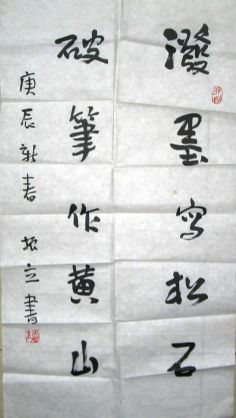 潑墨寫松石
破筆作黃山
庚辰新春 振立書